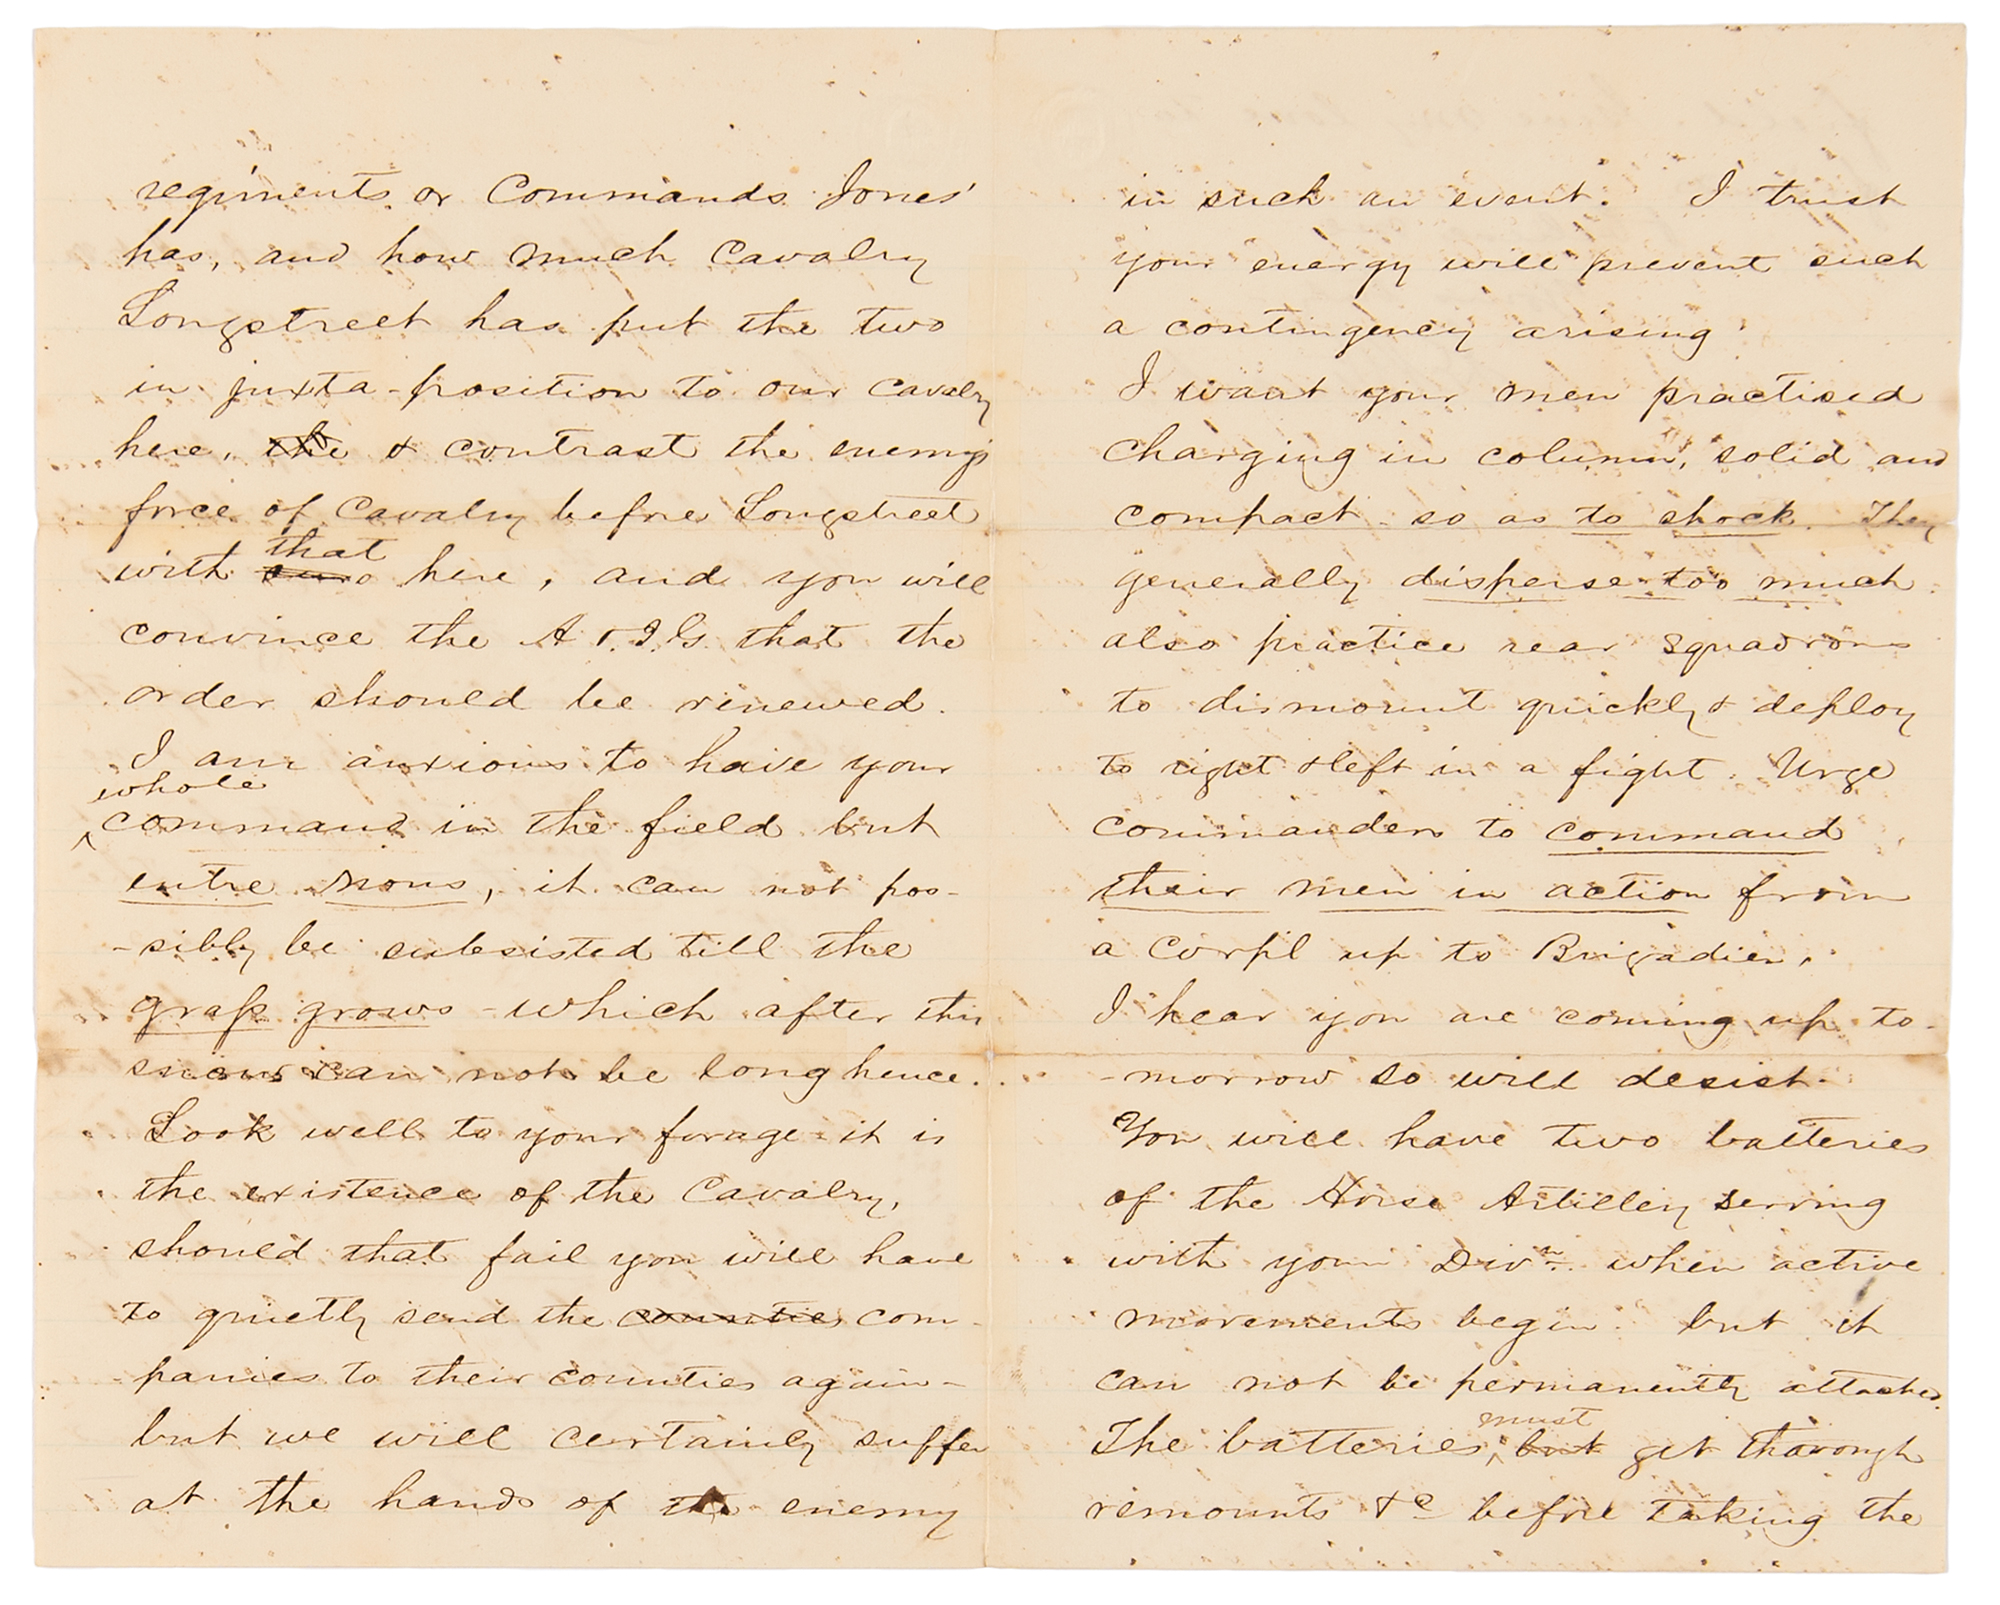 regiments or Commands Jones'
has, and how much Cavalry
Longstreet has put the two
in juxta-position to our Cavalry
here, the & contrast the enemy's
force of Cavalry before Longstreet
that
with our here, and you will
convince the A & I. G. that the
order should be renewed.
I am anxious to have your
whole
^command in the field but
entre nous, it can not pos-
-sibly be subsisted till the
grass grows - which after this
snow can not be long hence.
Look well to your forage - it is
the existence of the Cavalry,
should that fail you will have
to quietly send the counties com-
panies to their counties again -
but we will certainly suffer
at the hands of the enemy
in such an event. I trust
your energy will prevent such
a contingency arising.
I want your men practised
charging in column, solid and
compact - so as to shock. They
generally disperse too much.
also practice rear squadrons
to dismount quickly & deploy
to right & left in a fight. Urge
commanders to command
their men in action from
a Corpl up to Brigadier.
I hear you are coming up to-
-morrow so will desist.
You will have two batteries
of the Horse Artillery serving
with your Divn. when active
movements begin. but it
can not be permanently attached.
must
The batteries ^ but get thorough
remounts &c before taking the